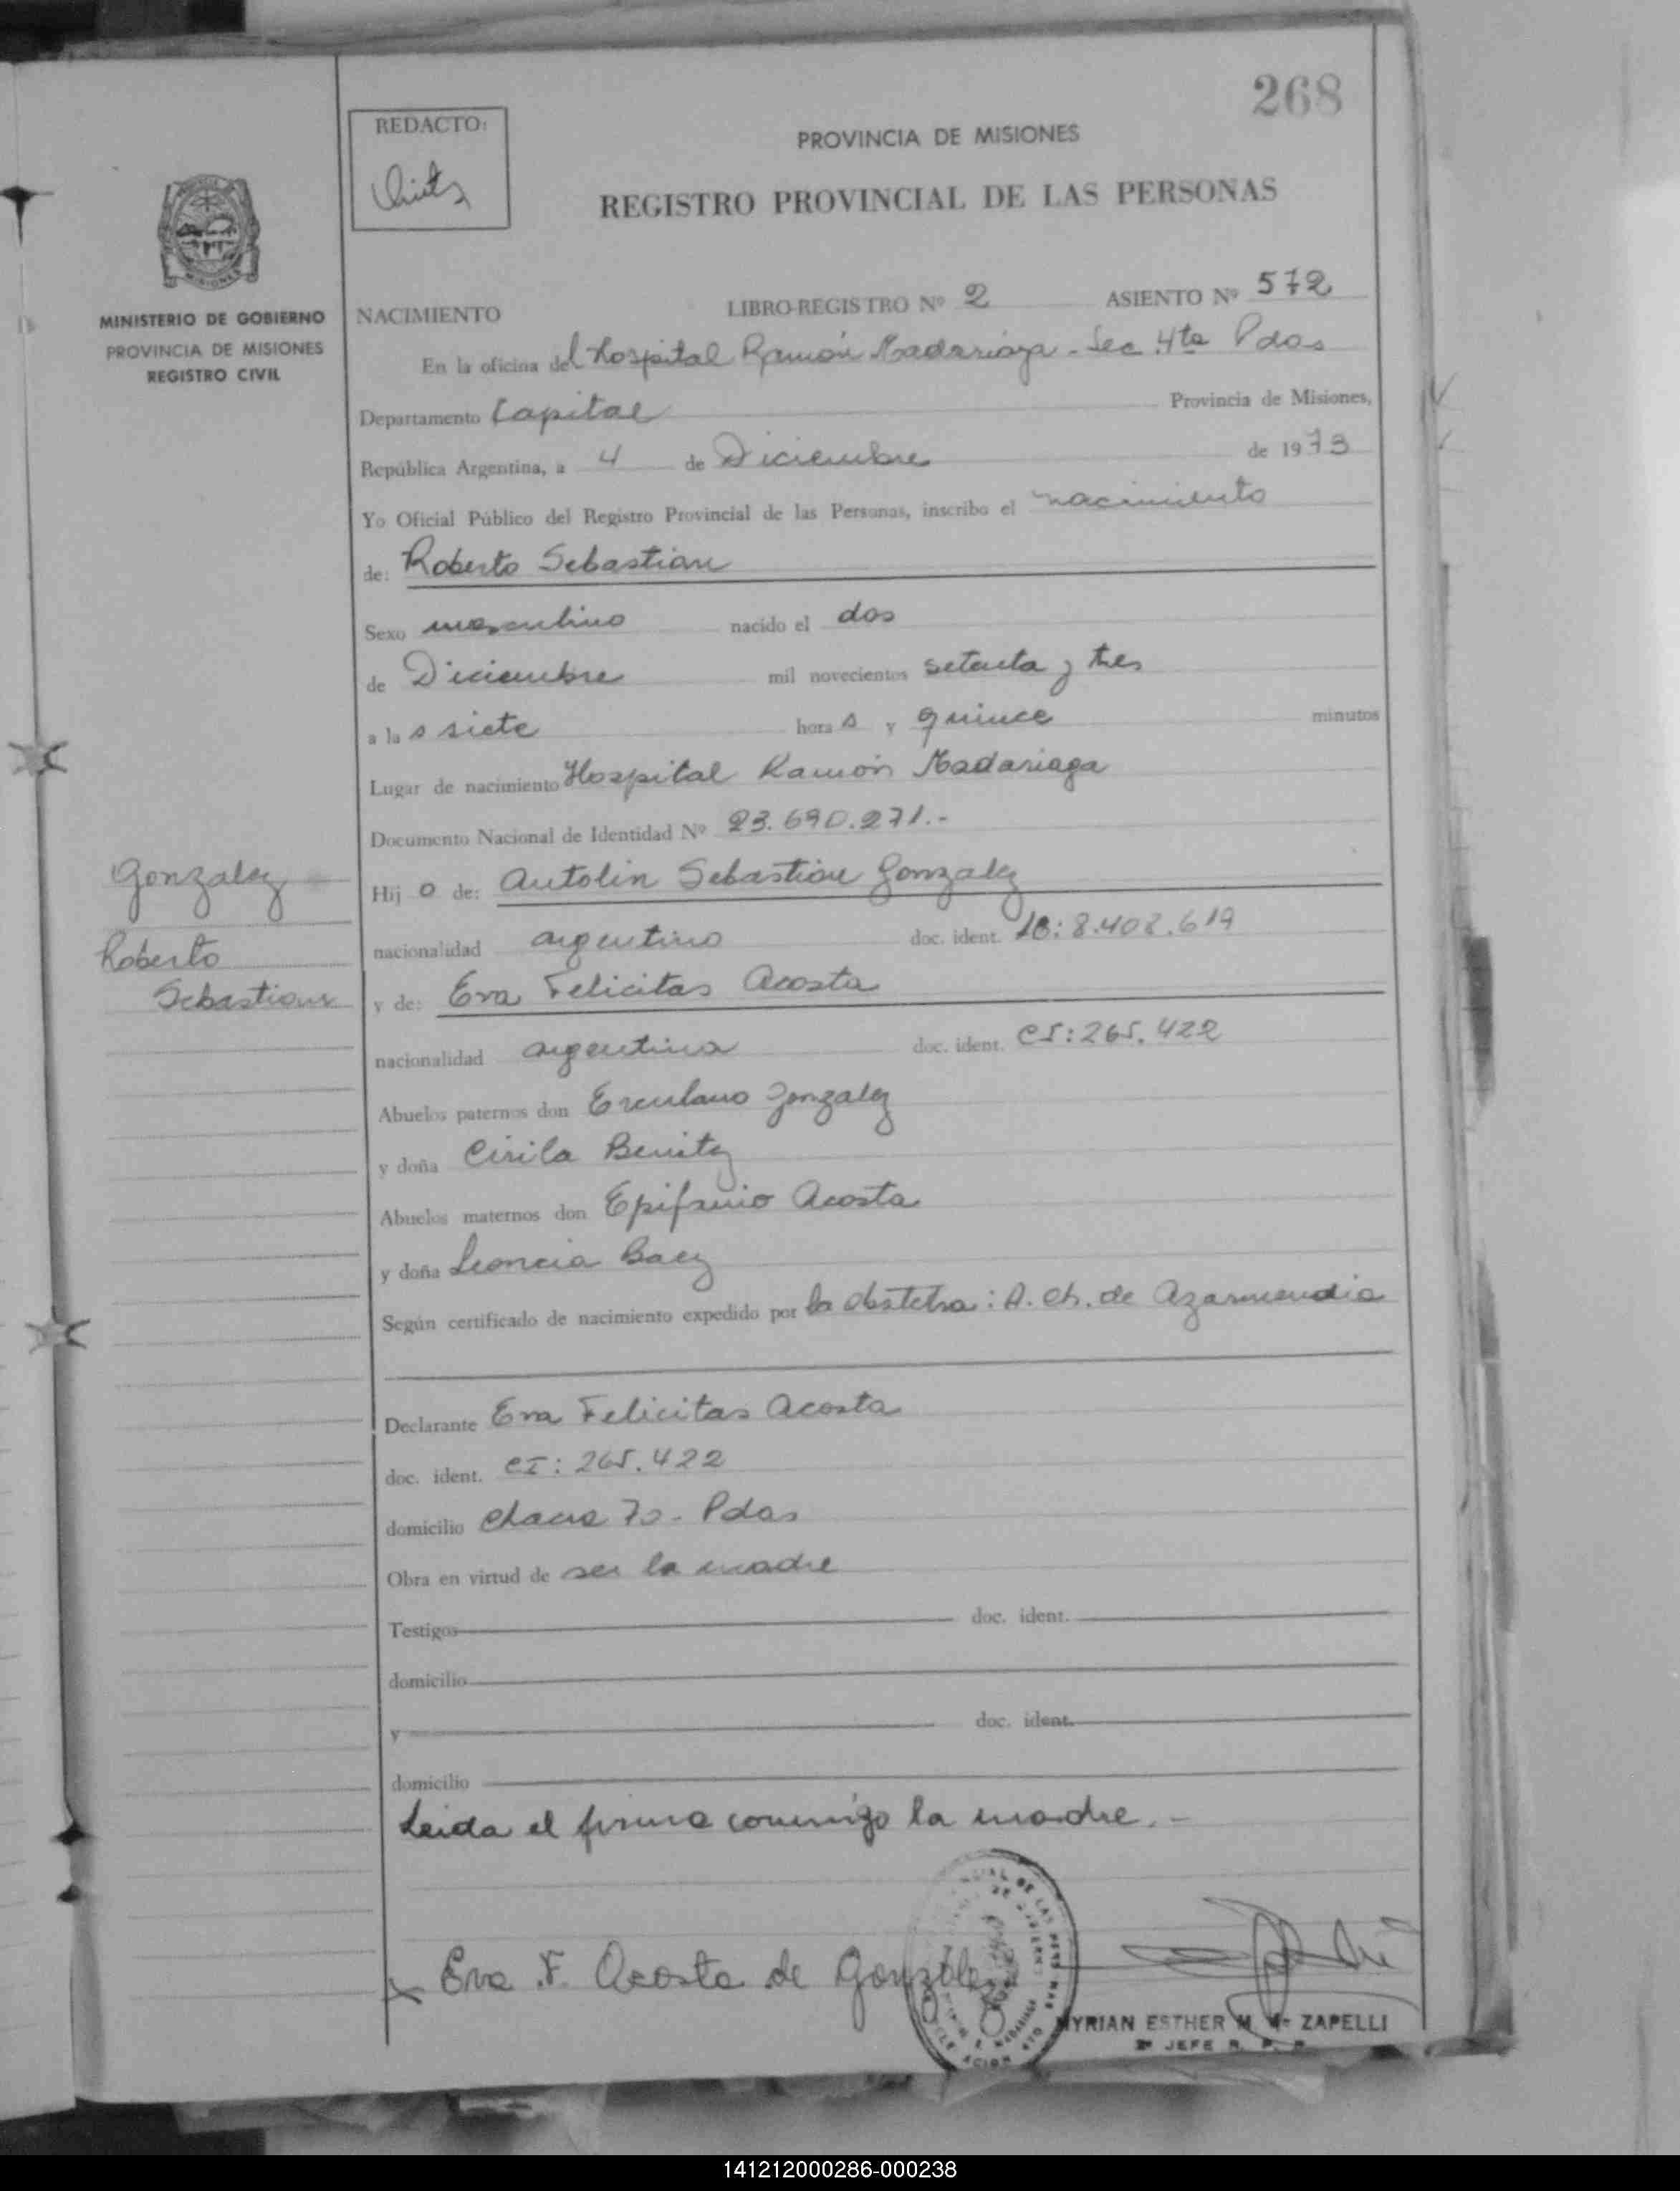 268
REDACTO:
PROVINCIA DE MISIONES
REGISTRO PROVINCIAL DE LAS PERSONAS
MISIONES
MINISTERIO DE GOBIERNO
PROVINCIA DE MISIONES
REGISTRO CIVIL
NACIMIENTO LIBRO-REGISTRO Nº 2 ASIENTO Nº 572
En la oficina del Hospital Ramón Madariaga - Sec. 4ta Pdas
Departamento Capital Provincia de Misiones,
República Argentina, a 4 de Diciembre de 1973
Yo Oficial Público del Registro Provincial de las Personas, inscribo el nacimiento
de: Roberto Sebastian
Sexo masculino nacido el dos
de Diciembre mil novecientos setenta y tres
a las siete horas y quince minutos
Lugar de nacimiento Hospital Ramón Madariaga
Documento Nacional de Identidad Nº 23.690.271.-
Gonzalez
Hijo de: Antolin Sebastian Gonzalez
Roberto
nacionalidad argentino doc. ident. 8.408.619
Sebastian
y de: Eva Felicitas Acosta
nacionalidad argentina doc. ident. CI: 265.422
Abuelos paternos don Erculano Gonzalez
y doña Cirila Benitez
Abuelos maternos don Epifanio Acosta
y doña Leoncia Baez
Según certificado de nacimiento expedido por la obstetra: A. Ch. de Azarmendia
Declarante Eva Felicitas Acosta
doc. ident. CI: 265.422
domicilio Chacra 70 - Pdas
Obra en virtud de ser la madre
Testigos doc. ident.
domicilio
y doc. ident.
domicilio
Leida el firma conmigo la madre.-
x Eva F. Acosta de Gonzalez
MYRIAN ESTHER M. ZAPELLI
2º JEFE R. P. P.
141212000286-000238